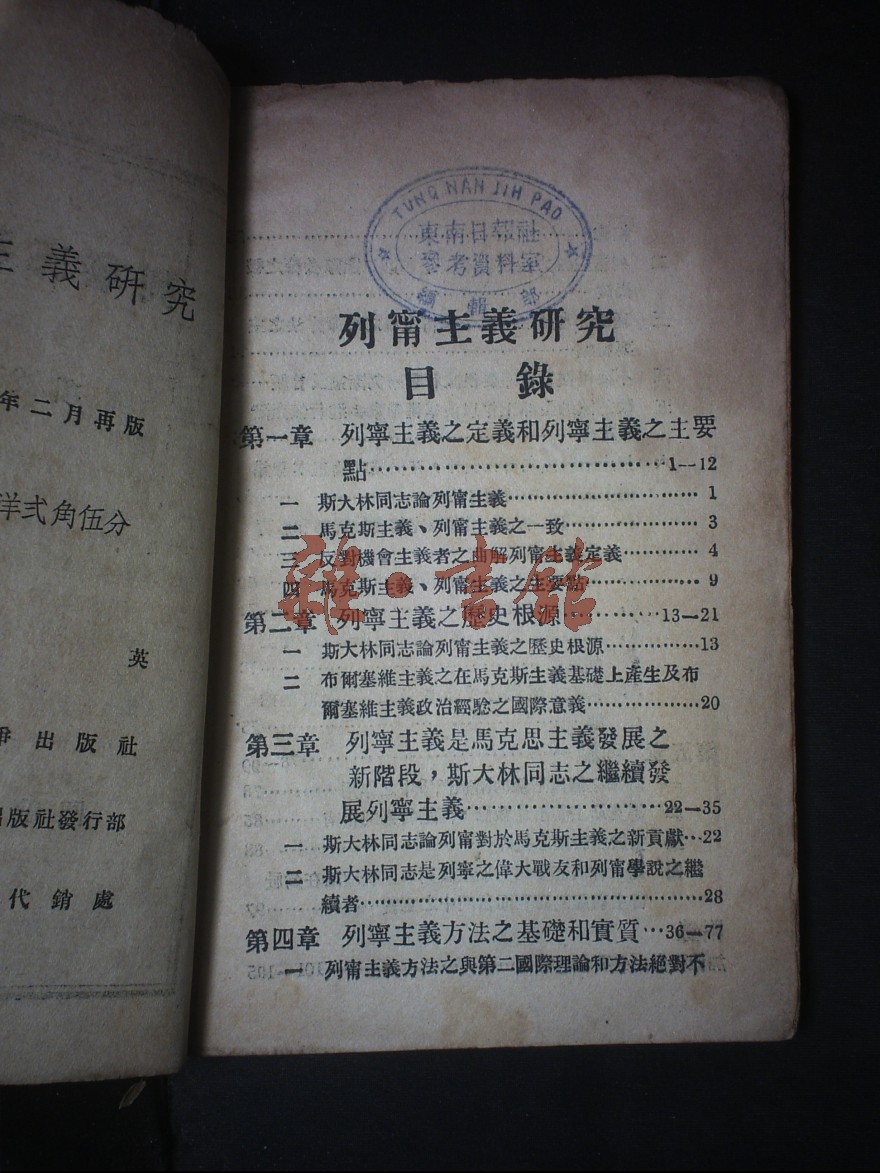 主義研究
年二月再版
洋弍角伍分
英
爭出版社
出版社發行部
代銷處
TUNG NAN JIH PAO
東南日報社
參考資料室
編輯部
列甯主義研究
目錄
第一章 列寧主義之定義和列寧主義之主要
點……………………………1—12
一 斯大林同志論列甯主義……………………1
二 馬克斯主義、列甯主義之一致……………3
三 反對機會主義者之曲解列甯主義定義………4
四 馬克斯主義、列甯主義之主要點……………9
第二章 列寧主義之歷史根源…………13—21
一 斯大林同志論列甯主義之歷史根源…………13
二 布爾塞維主義之在馬克斯主義基礎上產生及布
爾塞維主義政治經驗之國際意義…………20
第三章 列寧主義是馬克思主義發展之
新階段，斯大林同志之繼續發
展列寧主義……………………22—35
一 斯大林同志論列甯對於馬克斯主義之新貢獻…22
二 斯大林同志是列寧之偉大戰友和列甯學說之繼
續者……………………………………28
第四章 列寧主義方法之基礎和實質…36—77
一 列甯主義方法之與第二國際理論和方法絕對不
雜·書館